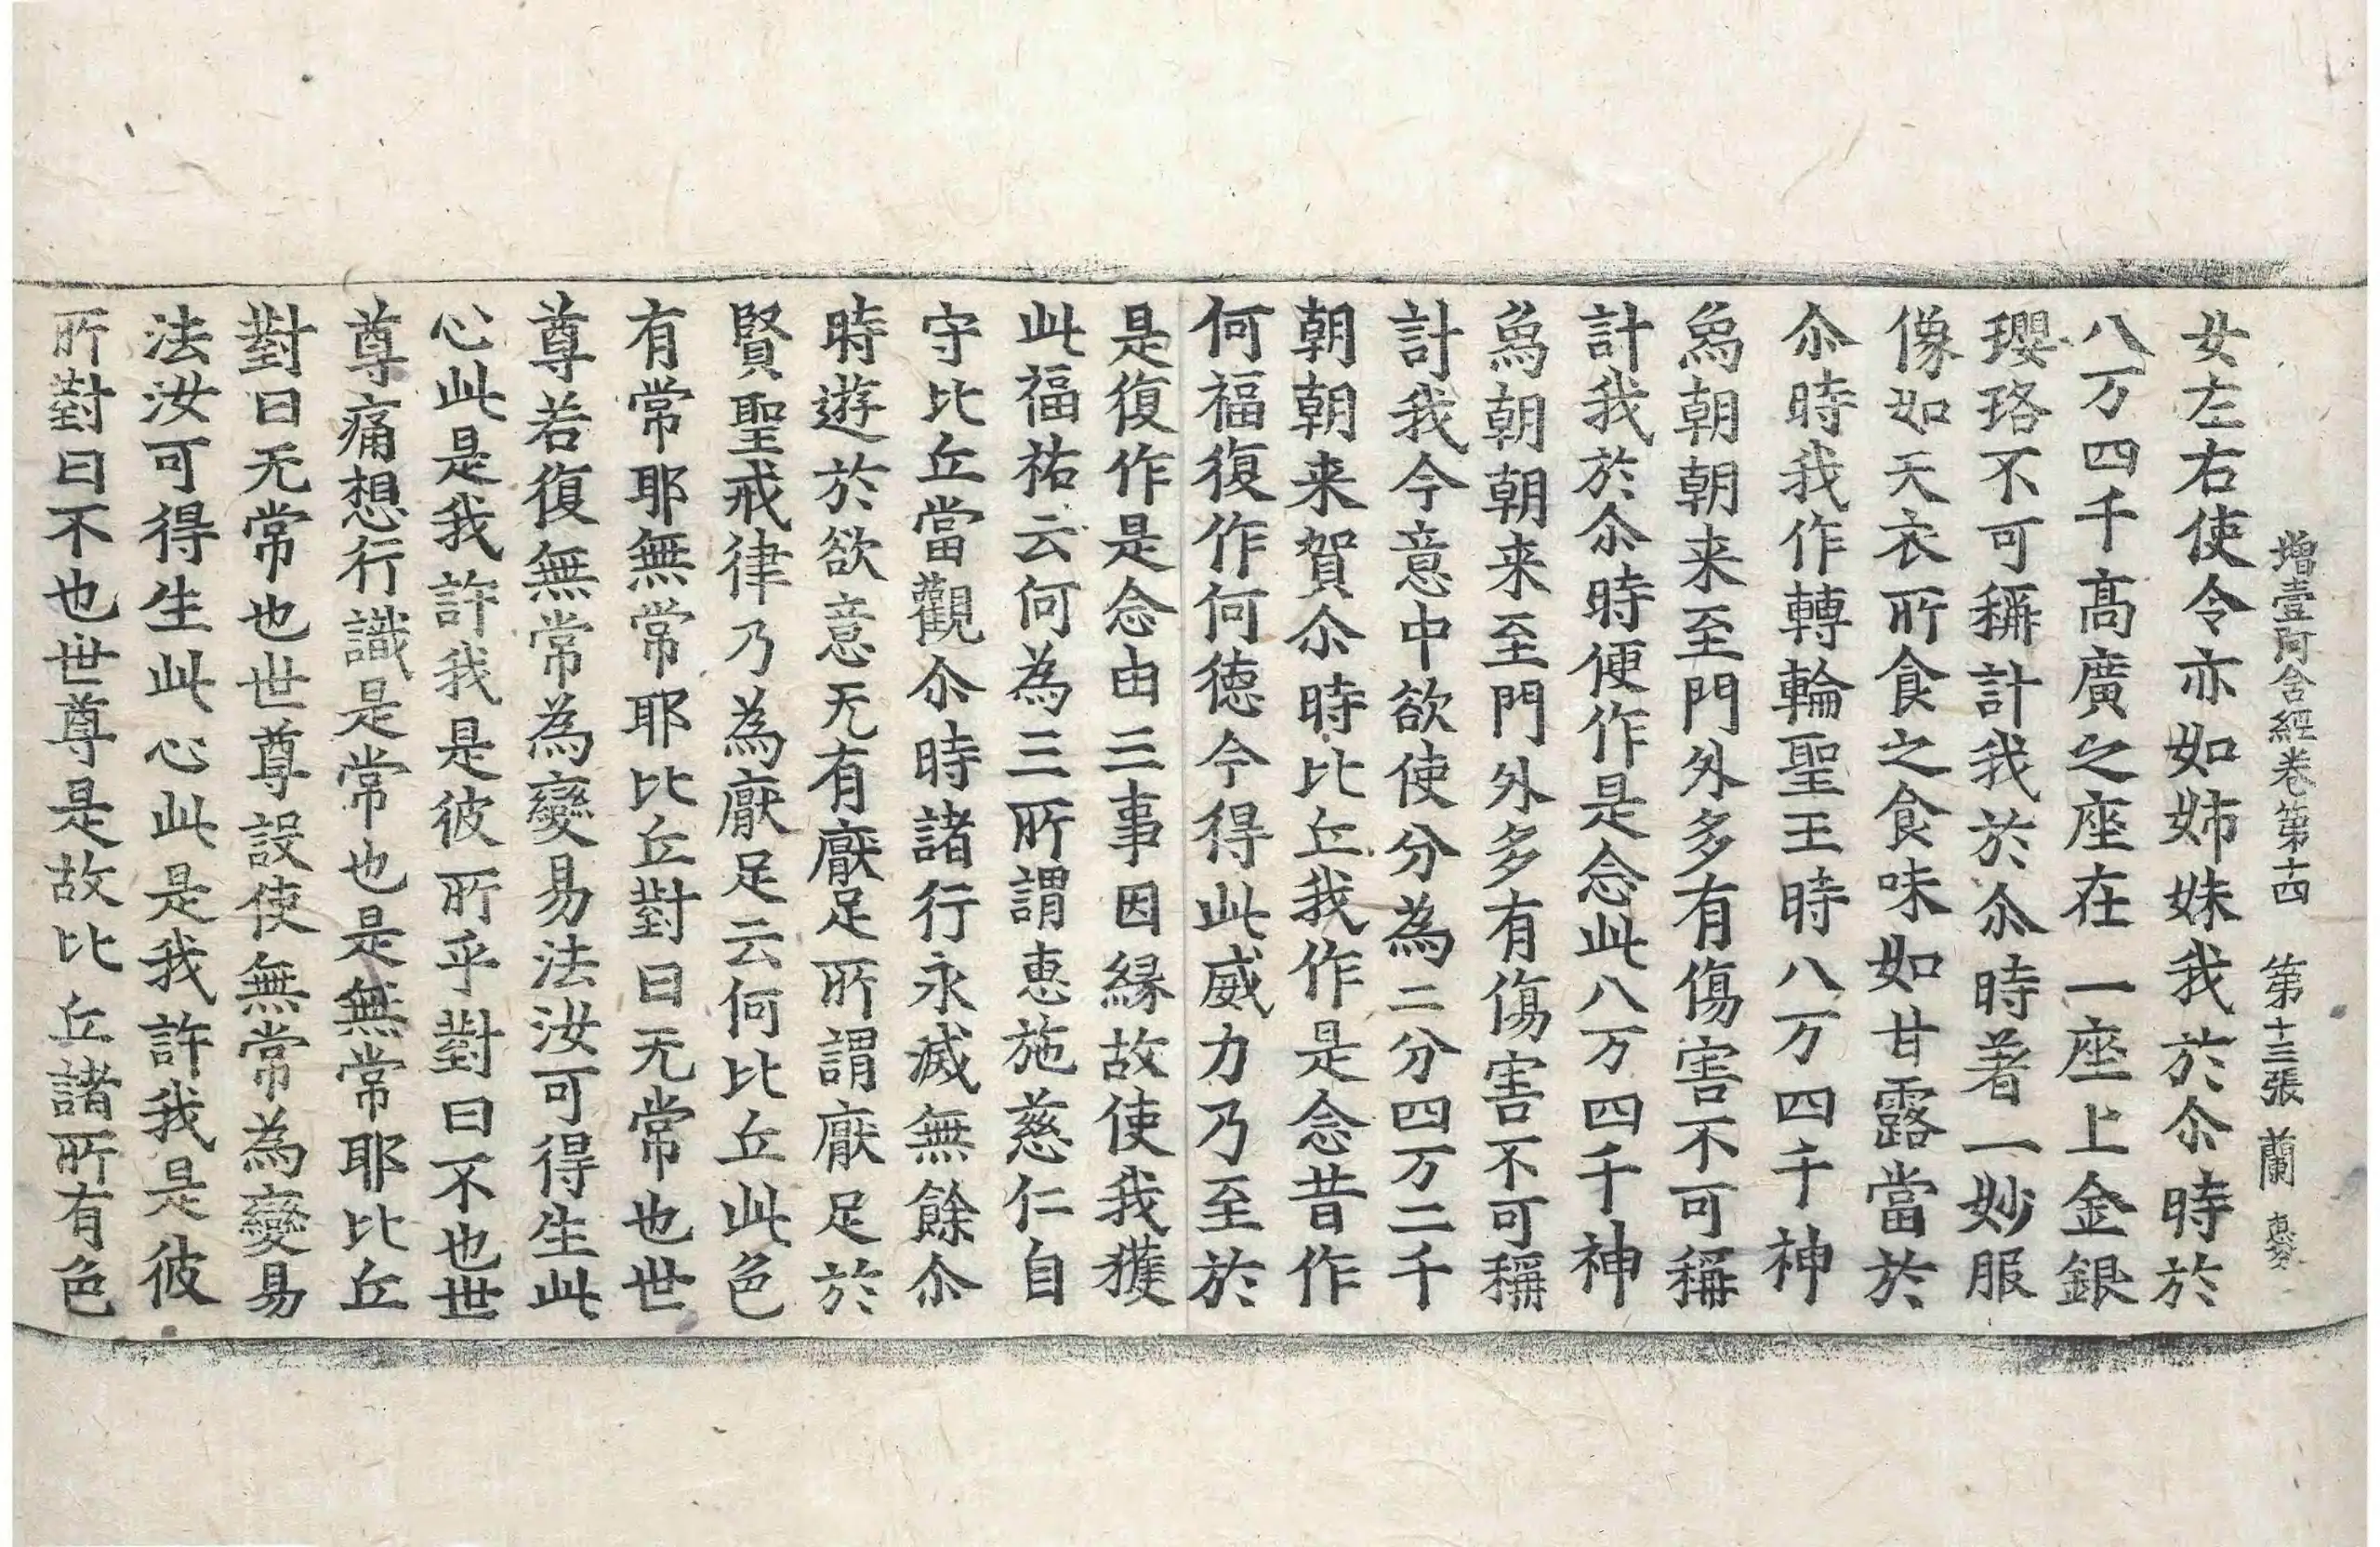 增壹阿含經卷第十四 第十三張 蘭
女左右使令亦如姉妹我於尒時於
八万四千髙廣之座在一座上金銀
瓔珞不可稱計我於尒時著一妙服
像如天衣所食之食味如甘露當於
尒時我作轉輪聖王時八万四千神
爲朝朝来至門外多有傷害不可稱
計我於尒時便作是念此八万四千神
爲朝朝来至門外多有傷害不可稱
計我今意中欲使分為二分四万二千
朝朝来賀尒時比丘我作是念昔作
何福復作何徳今得此威力乃至於
是復作是念由三事因縁故使我獲
此福祐云何為三所謂惠施慈仁自
守比丘當觀尒時諸行永滅無餘尒
時遊於欲意无有厭足所謂厭足於
賢聖戒律乃為厭足云何比丘此色
有常耶無常耶比丘對曰无常也世
尊若復無常為變易法汝可得生此
心此是我許我是彼所乎對曰不也世
尊痛想行識是常也是無常耶比丘
對曰无常也世尊設使無常為變易
法汝可得生此心此是我許我是彼
所對曰不也世尊是故比丘諸所有色